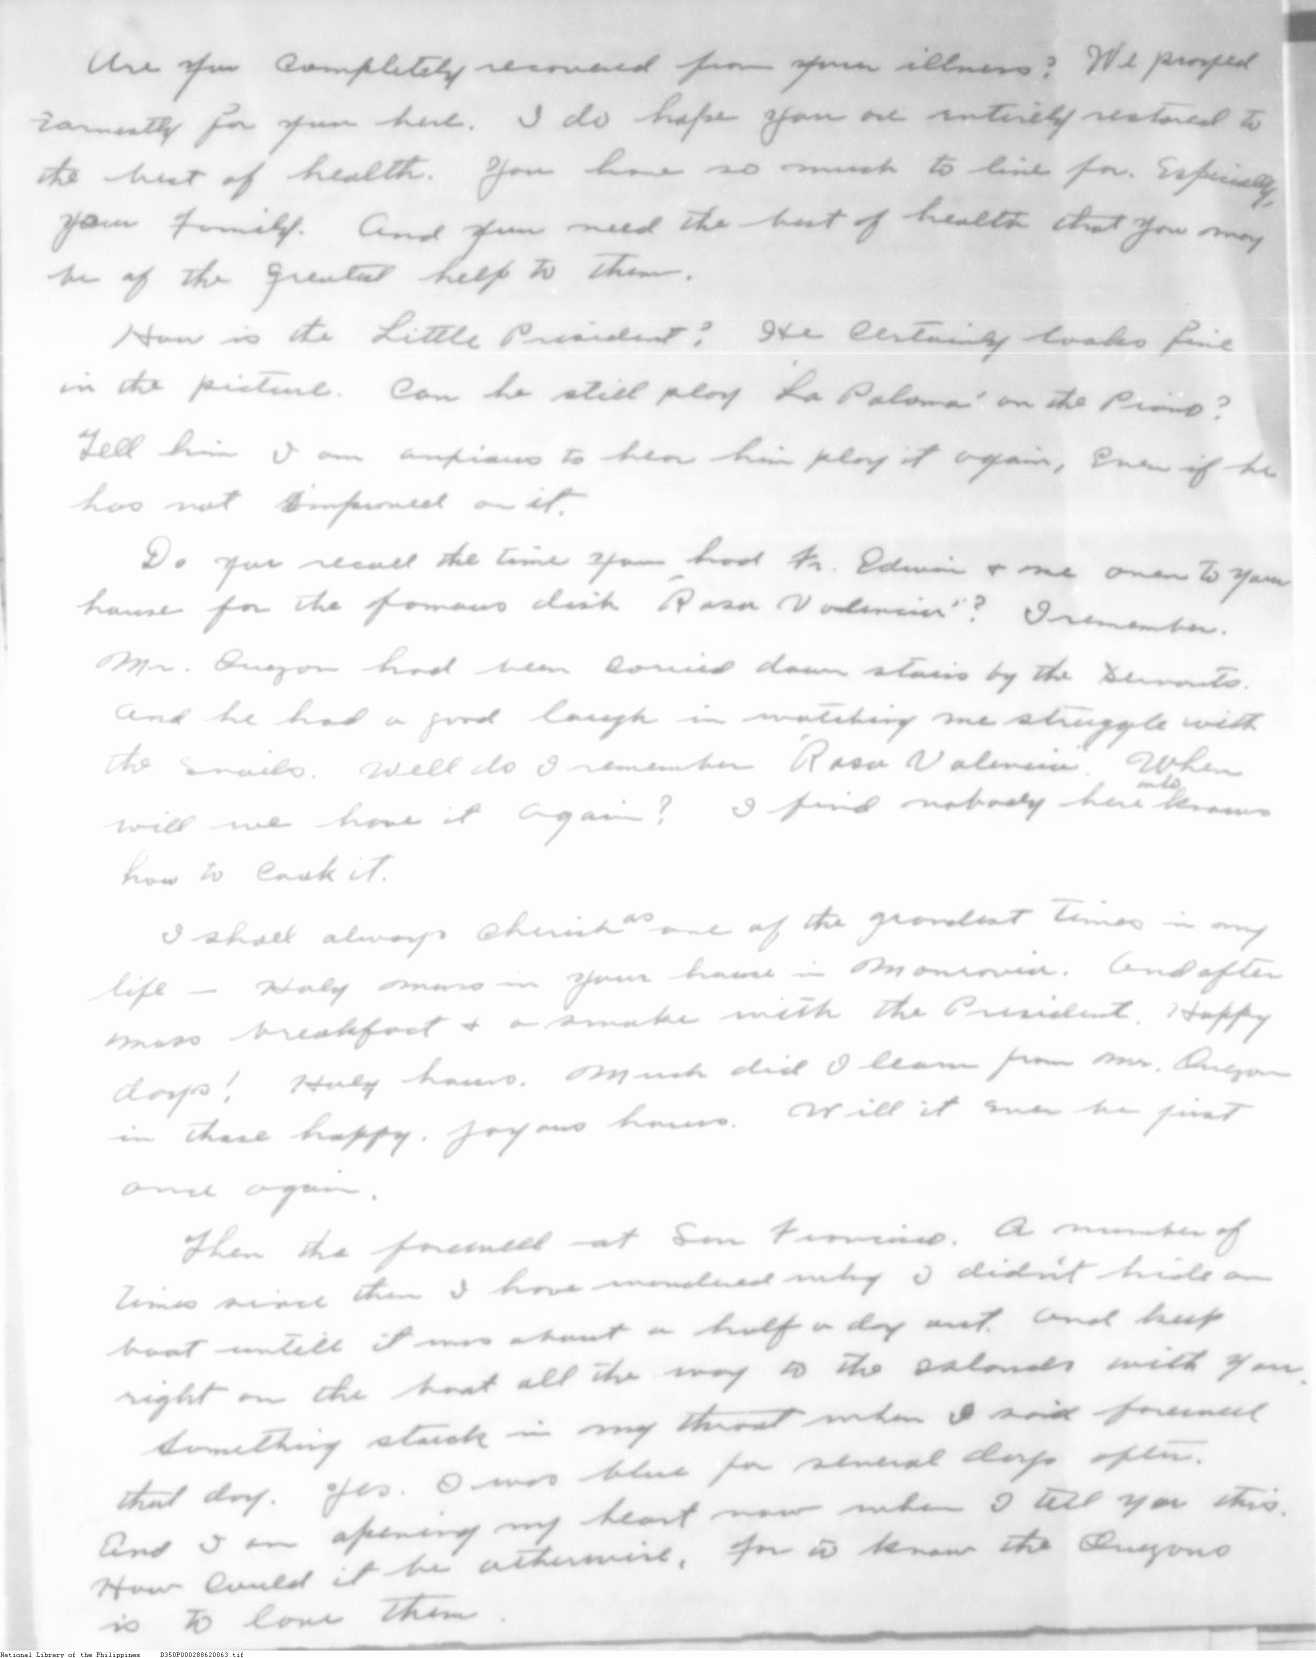 Are you completely recovered from your illness? We prayed
earnestly for you here. I do hope you are entirely restored to
the best of health. You have so much to live for. Especially,
your family. And you need the best of health that you may
be of the greatest help to them.
How is the Little President? He certainly looks fine
in the picture. Can he still play 'La Paloma' on the Piano?
Tell him I am anxious to hear him play it again, even if he
has not improved on it.
Do you recall the time you had Fr. Edwin & me over to your
house for the famous dish "Rasa Valencia"? I remember.
Mr. Quezon had been carried down stairs by the servants.
And he had a good laugh in watching me struggle with
the snails. Well do I remember 'Rasa Valencia'. When
will we have it again? I find nobody here who knows
how to cook it.
I shall always cherish as one of the grandest times in my
life — Holy mass in your house in Monrovia. And after
mass breakfast & a smoke with the President. Happy
days! Holy hours. Much did I learn from Mr. Quezon
in those happy, joyous hours. Will it ever be just
once again.
Then the farewell at San Francisco. A number of
times since then I have wondered why I didn't hide on
boat untill it was about a half a day out. And keep
right on the boat all the way to the Islands with you.
Something stuck in my throat when I said farewell
that day. Yes. I was blue for several days after.
And I am opening my heart now when I tell you this.
How could it be otherwise, for to know the Quezons
is to love them.
National Library of the Philippines D350P000288620063.tif